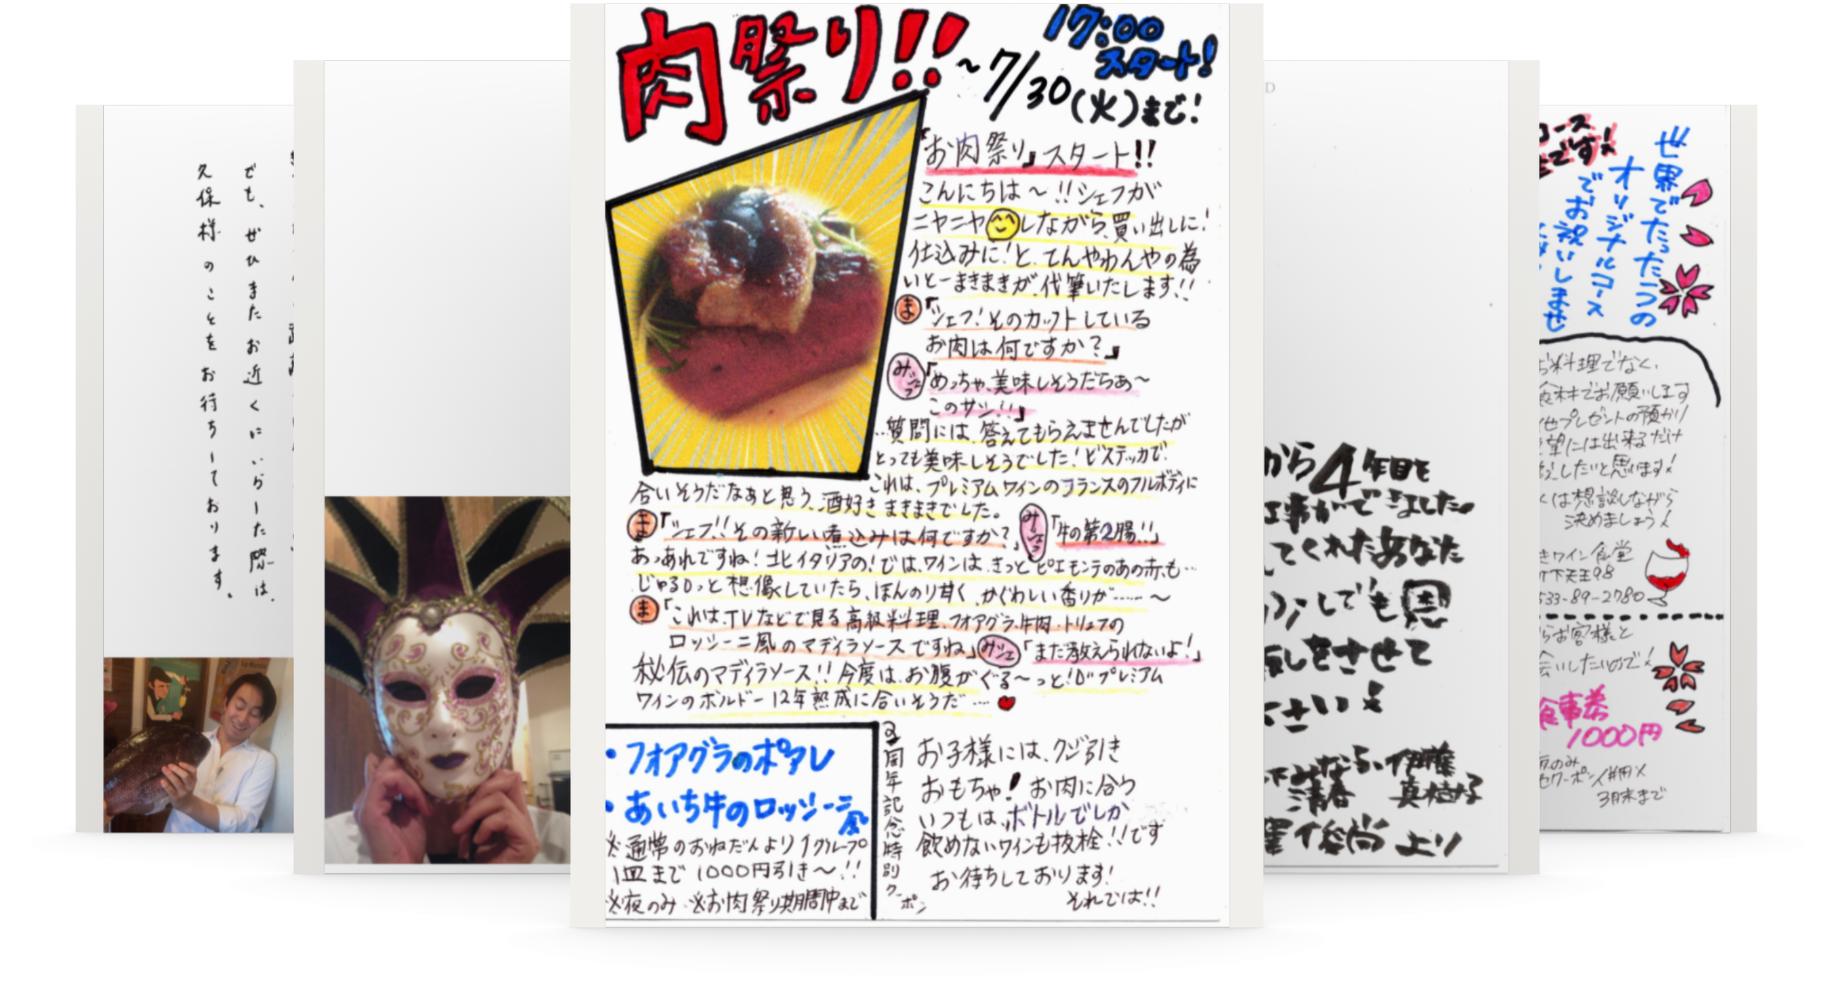 肉祭り!!
17:00
スタート!
~7/30(火)まで!
「お肉祭り」スタート!!
こんにちは~!!シェフが
ニヤニヤしながら、買い出しに!
仕込みに!と、てんやわんやの為
いとーまきまきが、代筆いたします!!
ま「シェフ!そのカットしている
お肉は何ですか?」
みシェフ「めっちゃ、美味しそうだらあ~
このサシ!!」
…質問には、答えてもらえませんでしたが
とっても美味しそうでした!ビステッカで、
これは、プレミアムワインのフランスのフルボディに
合いそうだなあと思う、酒好きまきまきでした。
ま「シェフ!!その新しい煮込みは何ですか?」みシェフ「牛の第2腸!!」
あっあれですね!北イタリアの!では、ワインは、きっとピエモンテのあの赤、も…
じゅるりっと想像していたら、ほんのり甘く、かぐわしい香りが……~
ま「これは、TVなどで見る高級料理、フォアグラ、牛肉・トリュフの
ロッシーニ風のマディラソースですね」みシェ「まだ教えられないよ!」
秘伝のマディラソース!!今度は、お腹がぐる~っと!プレミアム
ワインのボルドー12年熟成に合いそうだ…
・フォアグラのポアレ
・あいち牛のロッシーニ風
※通常のおねだんより1グループ
1皿まで1000円引き~!!
※夜のみ ※お肉祭り期間中まで
2周年記念特別クーポン
お子様には、クジ引き
おもちゃ!お肉に合う
いつもは、ボトルでしか
飲めないワインも抜栓!!です
お待ちしております!
それでは!!
でも、ぜひまたお近くにいらした際は、
久保様のことをお待ちしております。
から4年目を
してくれたあなた
しでも恩
しをさせて
さい!
より
コース
です!
世界でたった1つの
オリジナルコース
でお祝いしませ
料理でなく、
食材でお願いします
プレゼントの預かり
望には出来るだけ
したいと思います!
は想談しながら
決めましょう!
きワイン食堂
下天王98
533-89-2780
らお客様と
会いしたいので!
食事券
1000円
夜のみ
クーポン併用×
3月末まで